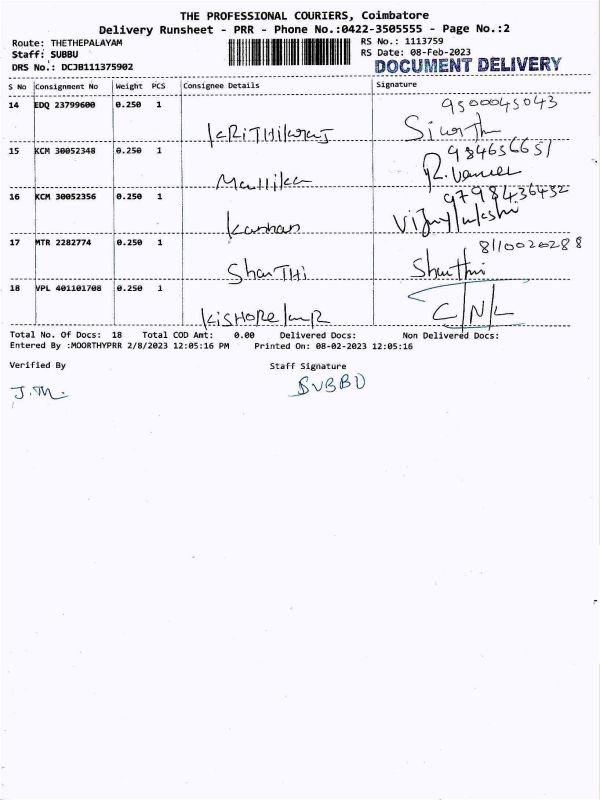 THE PROFESSIONAL COURIERS, Coimbatore
Delivery Runsheet - PRR - Phone No.:0422-3505555 - Page No.:2
Route: THETHEPALAYAM
Staff: SUBBU
DRS No.: DCJB111375902
RS No.: 1113759
RS Date: 08-Feb-2023
DOCUMENT DELIVERY
S No Consignment No Weight PCS Consignee Details Signature
14 EDQ 23799600 0.250 1 9500045043
15 KCM 30052348 0.250 1 984656651
Mallika
16 KCM 30052356 0.250 1 9798436432
Kannan
17 MTR 2282774 0.250 1 8110020288
ShanTHi Shanthi
18 VPL 401101708 0.250 1 C/N/L
KiSHORe
Total No. Of Docs: 18 Total COD Amt: 0.00 Delivered Docs: Non Delivered Docs:
Entered By :MOORTHYPRR 2/8/2023 12:05:16 PM Printed On: 08-02-2023 12:05:16
Verified By Staff Signature
J.M. SUBBU